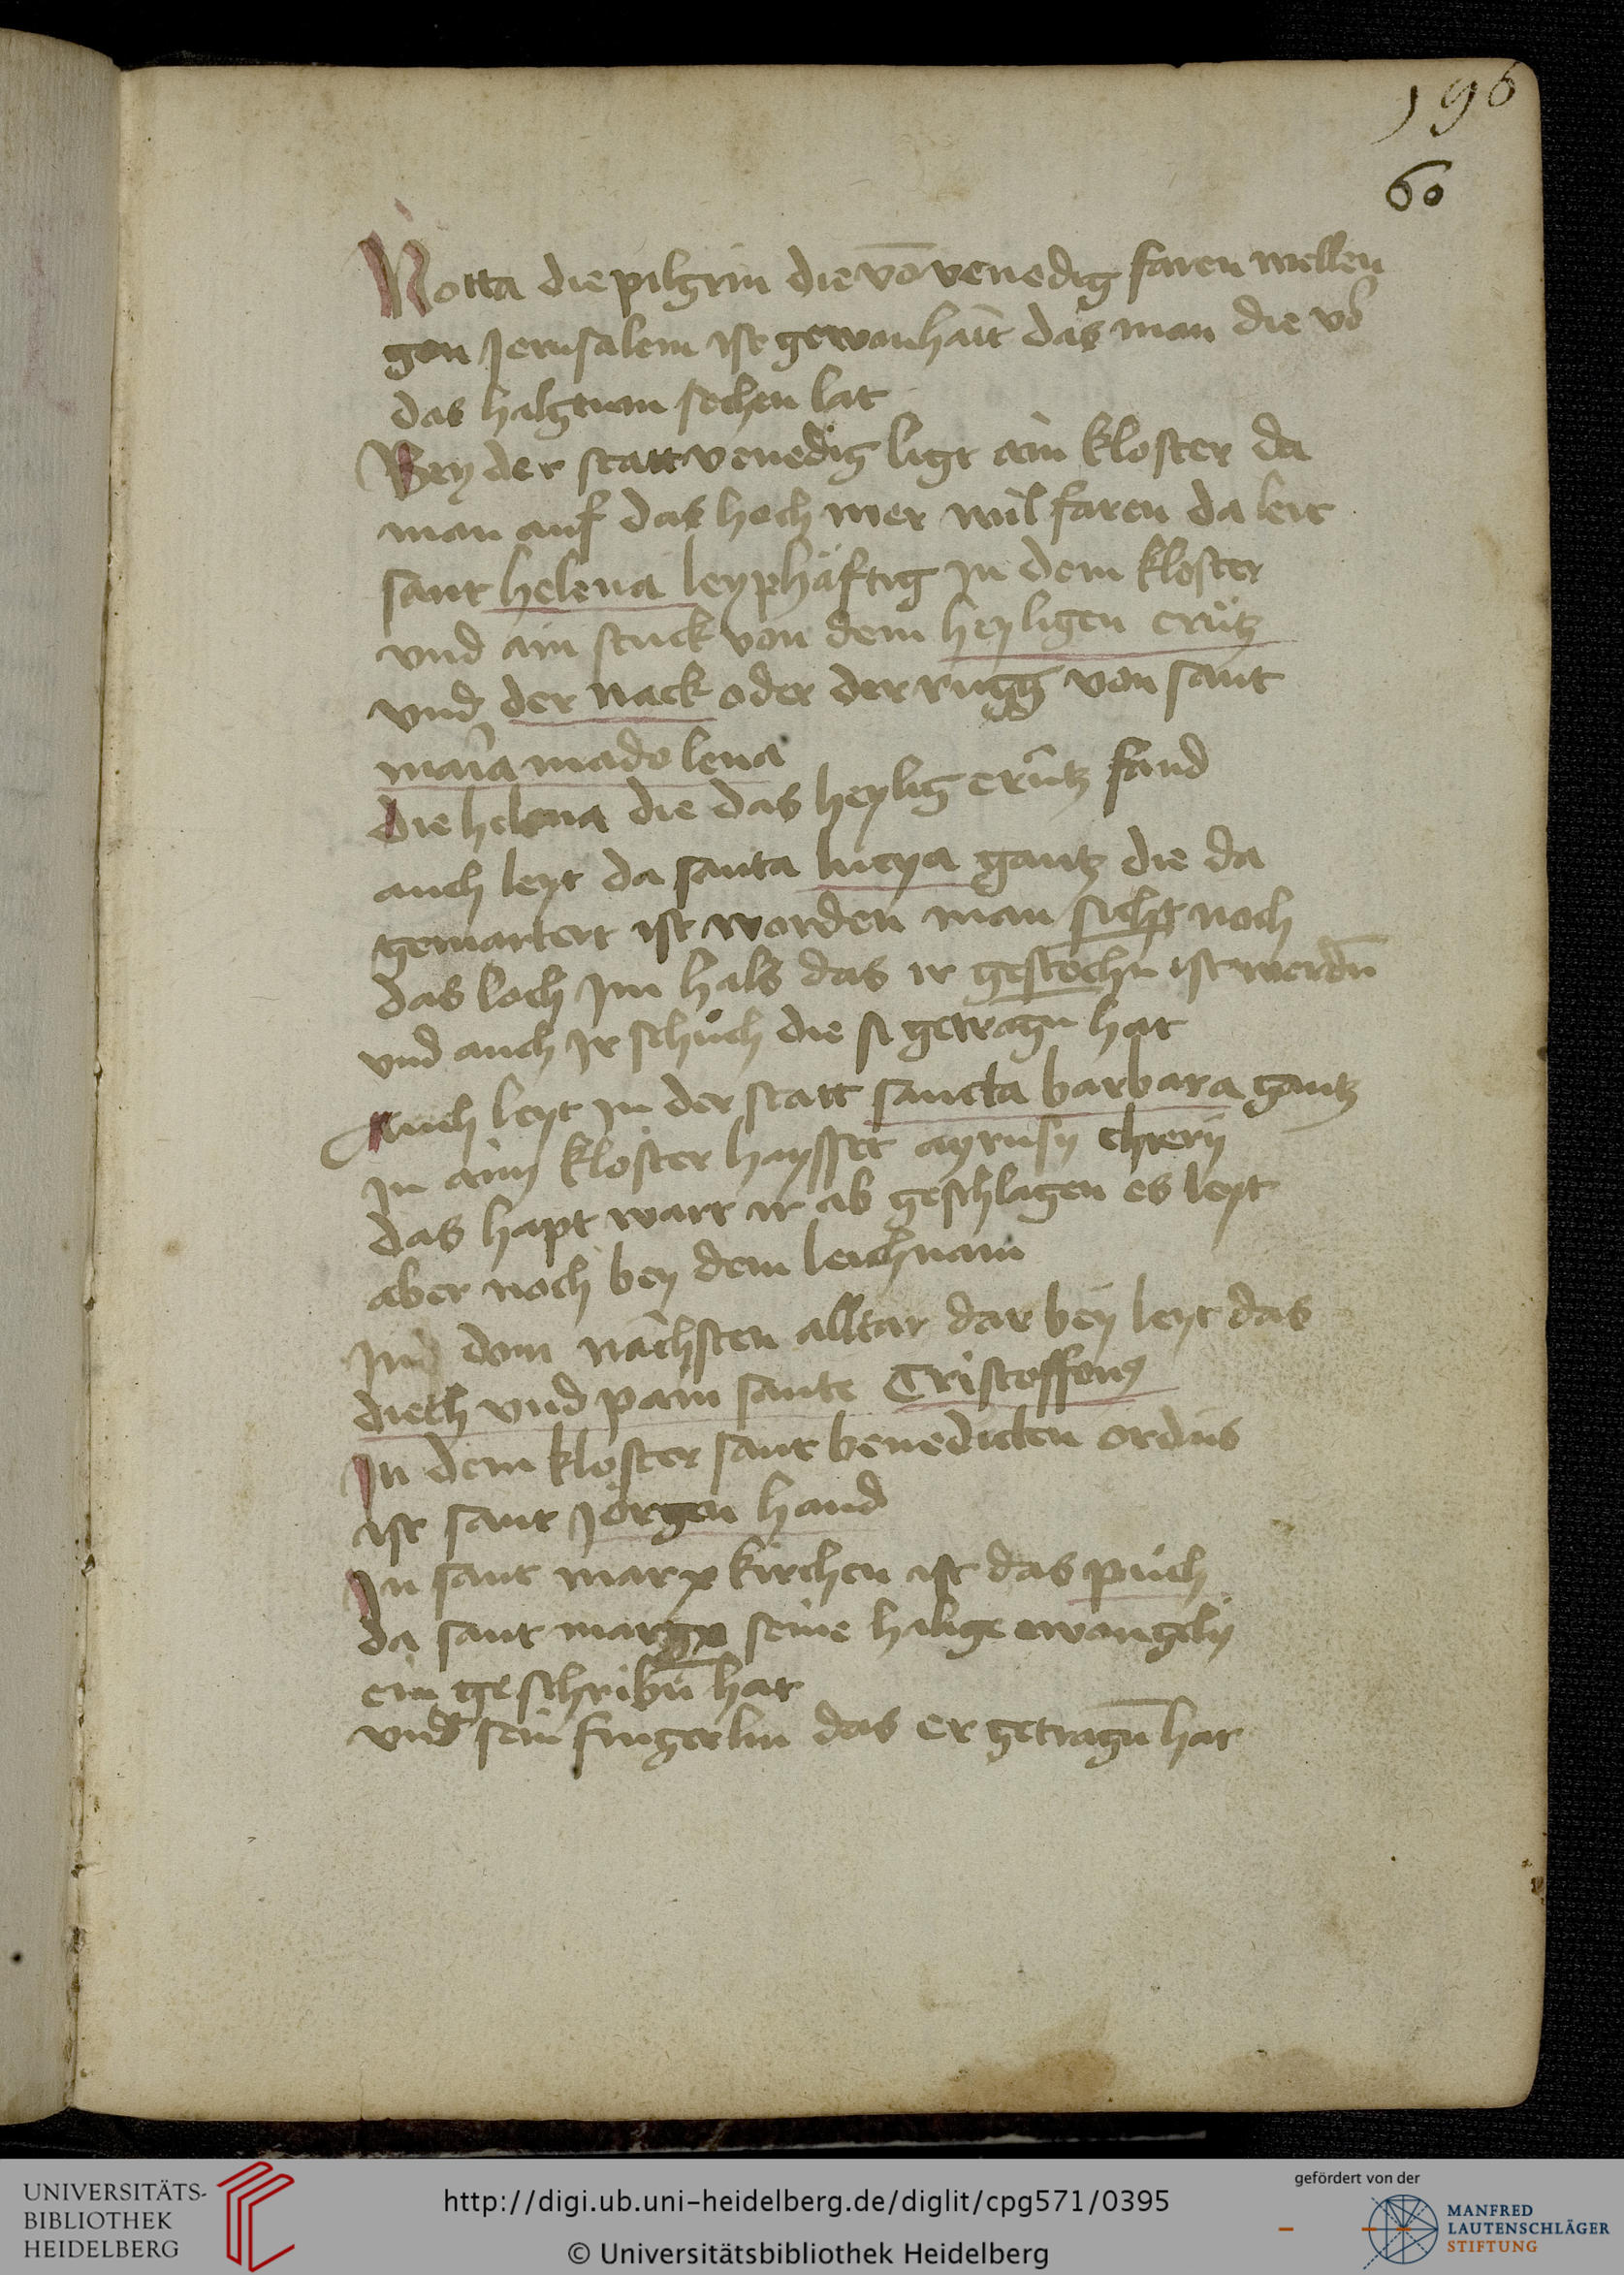 196
60
Notta die pilgrin die vō venedig faren wellen
gen Jerusalem ist gewonhait das man die vō
das halgtum sechen lat
Bey der statt venedig ligt ain kloster da
man auf das hoch mer wil faren da leit
sant helena leyphäftig in dem kloster
vnd ain stuck von dem heyligen crütz
vnd der nack oder der rugg von sant
maria madolena
die helena die das heylig crütz fand
auch leyt da santa lucya gantz die da
gemartert ist worden man sicht noch
das loch Im hals das ir gestochn ist wordn̄
vnd auch Ir schůch die si getragn hat
Auch leyt In der statt sancta barbara gantz
In aim kloster haysset
das hapt wart ir ab geschlagen es leyt
aber noch bey dem leichnam
In dem nächsten alltar dar bey leyt das
diech vnd pain sante Cristofferus
In dem kloster sant benedicten ordns
ist sant Jörgen hand
In sant marx kirchen ist das půch
da sant marx seine hailige ewangely
ein geschribn̄ hat
vnd sein fingerlin das er getragn̄ hat
UNIVERSITÄTS-
BIBLIOTHEK
HEIDELBERG
http://digi.ub.uni-heidelberg.de/diglit/cpg571/0395
© Universitätsbibliothek Heidelberg
gefördert von der
MANFRED
LAUTENSCHLÄGER
STIFTUNG